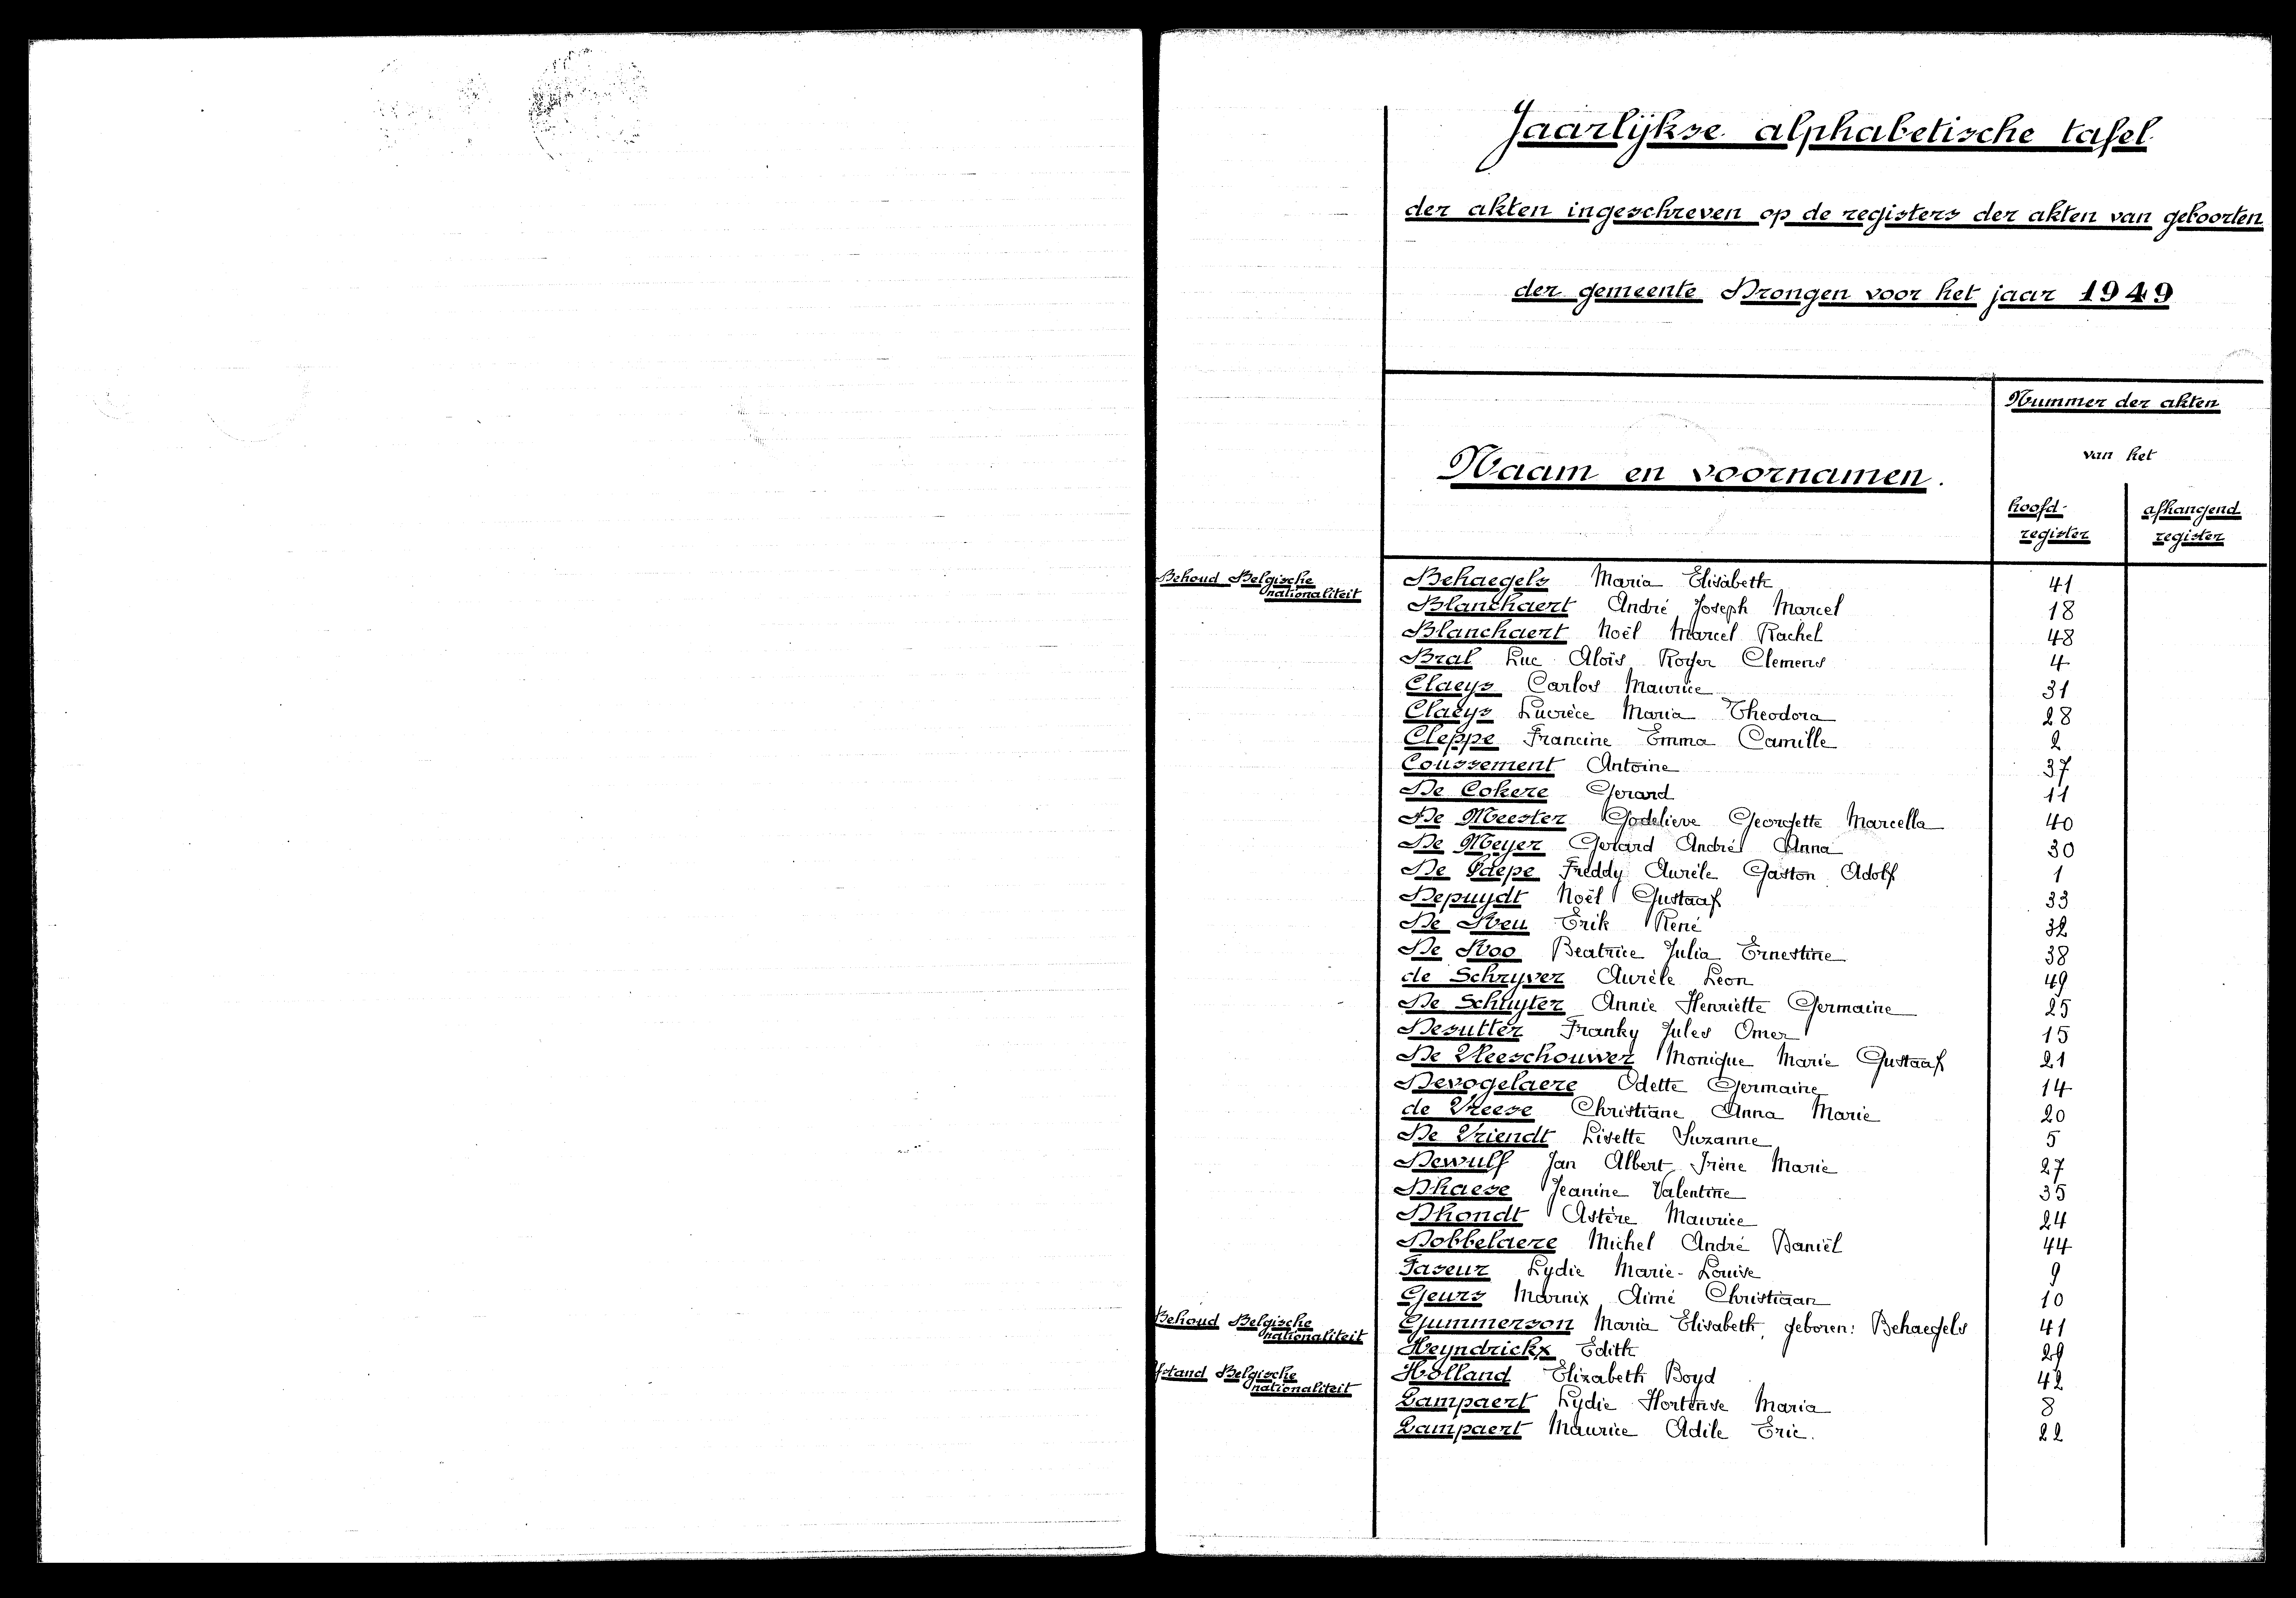 Jaarlijkse alphabetische tafel.
der akten ingeschreven op de registers der akten van geboorten
der gemeente Drongen voor het jaar 1949
Naam en voornamen.
Nummer der akten
van het
hoofd-
register
afhangend
register
Behoud Belgische
nationaliteit
Behaegels Maria Elisabeth 41
Blanckaert André Joseph Marcel 18
Blanckaert Noël Marcel Rachel 48
Bral Luc Aloïs Roger Clemens 4
Claeys Carlos Maurice 31
Claeys Lucrèce Maria Theodora 28
Cleppe Francine Emma Camille 2
Coussement Antoine 37
De Cokere Gerard 11
De Meester Godelieve Georgette Marcella 40
De Meyer Gerard André Anna 30
De Paepe Freddy Aurèle Gaston Adolf 1
Depuydt Noël Gustaaf 33
De Reu Erik René 32
De Roo Beatrice Julia Ernestine 38
de Schryver Aurèle Leon 49
De Schuyter Annie Henriette Germaine 25
Desutter Franky Jules Omer 15
De Vleeschouwer Monique Marie Gustaaf 21
Devogelaere Odette Germaine 14
de Vreese Christiane Anna Marie 20
De Vriendt Lisette Suzanne 5
Dewulf Jan Albert Irène Marie 27
Dhaese Jeanine Valentine 35
Dhondt Astère Maurice 24
Dobbelaere Michel André Daniël 44
Faseur Lydie Marie-Louise 9
Geurs Marnix Aimé Christiaan 10
Behoud Belgische
nationaliteit
Gummerson Maria Elisabeth, geboren: Behaegels 41
Heyndrickx Edith 29
fstand Belgische
nationaliteit
Holland Elizabeth Boyd 42
Lampaert Lydie Hortense Maria 8
Lampaert Maurice Adile Eric. 22